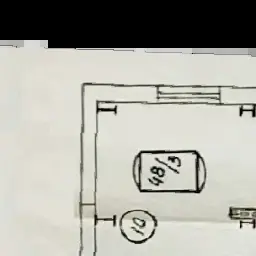 48/3
10